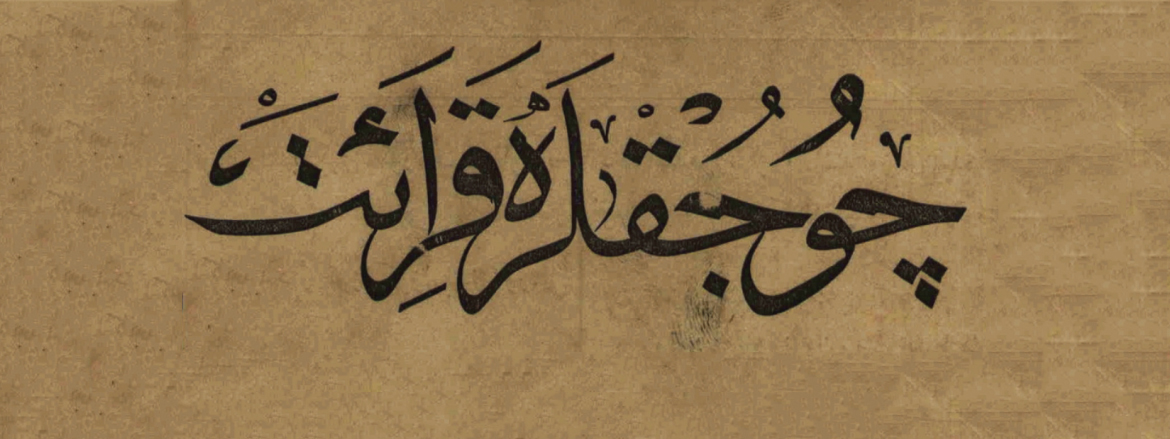 چوجقلره قرائت